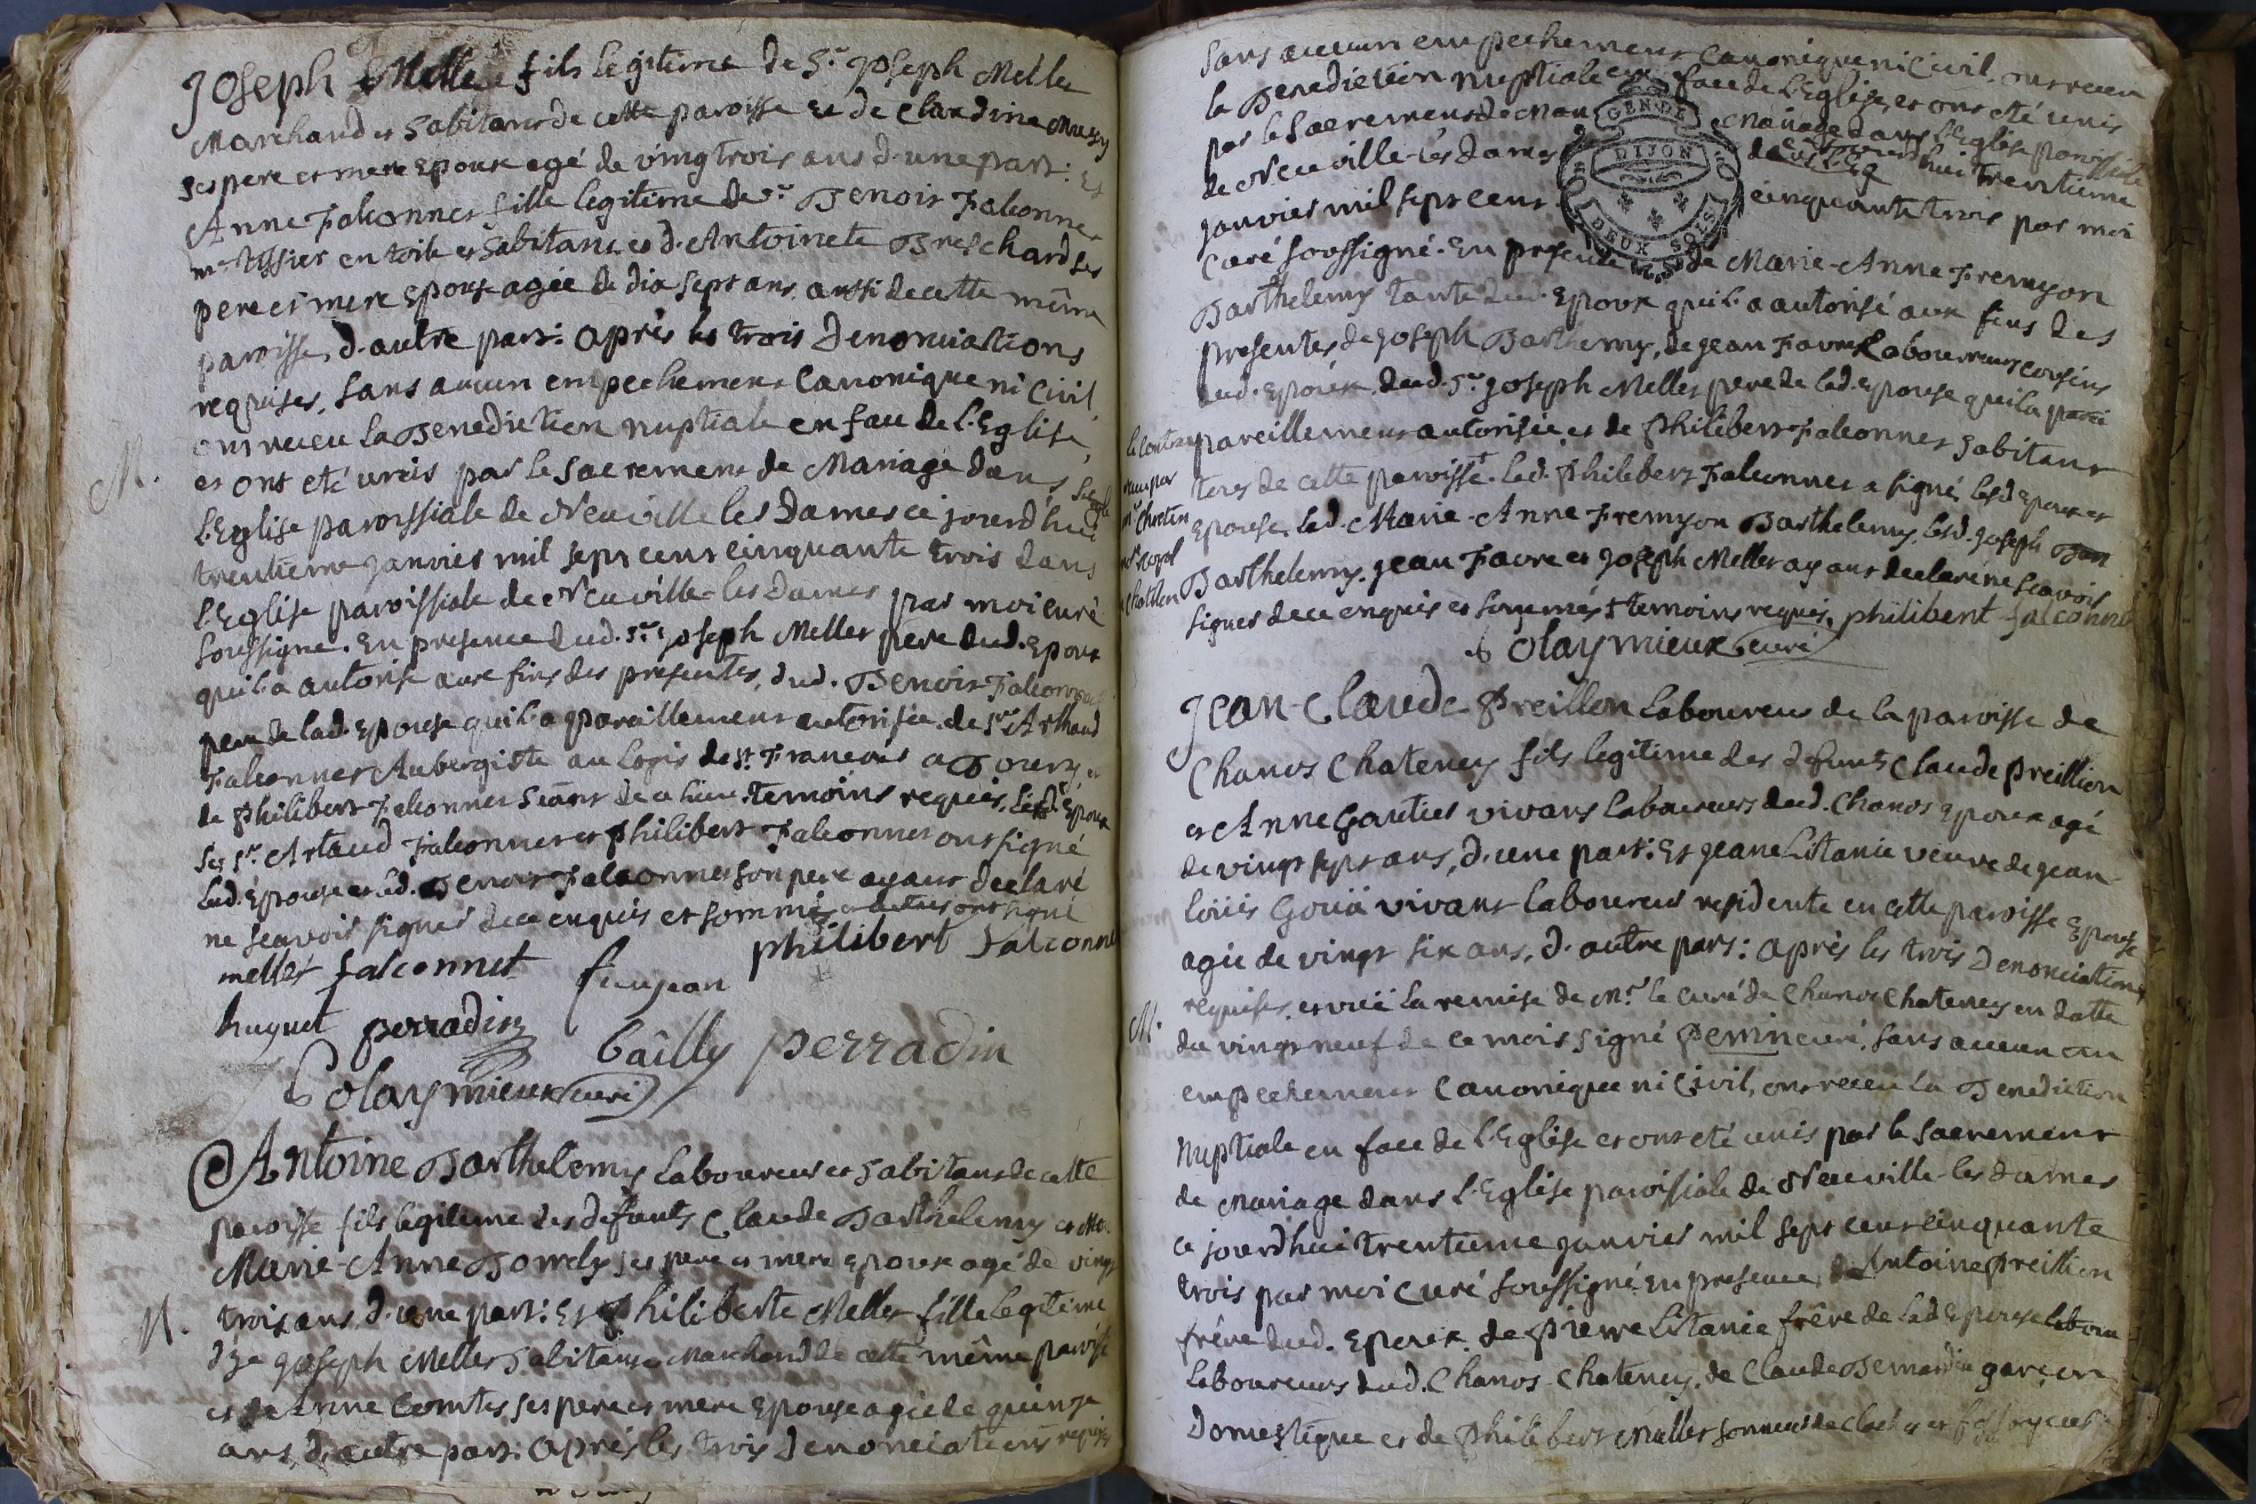 Joseph Meller fils legitime de Sr. Joseph Meller
Marchand et habitant de cette paroisse et de Claudine
ses pere et mere Epoux agé de vingtrois ans d'une part: Et
Anne Falconnet fille legitime de Sr. Benoit Falconnet
me. Tissier en toile et habitant et d'Antoinete Brechard ses
pere et mere Epouse agée de dix sept ans aussi de cette même
paroisse, d'autre part: après les trois Denonciations
requises, sans aucun empechement Canonique ni Civil,
ont receu la Benediction nuptiale en face de l'Eglise,
M.
et ont eté unis par le Sacrement de Mariage dans
l'Eglise paroissiale de Neuville les Dames ce jourd'hui
trentieme janvier mil sept cent cinquante trois dans
l'Eglise paroissiale de Neuville-les Dames par moi curé
soussigné. En presence dud. Sr. Joseph Meller pere dud. Epoux
qu'il a autorisé aux fins des presentes, dud. Benoit Falconnet
pere de lad. Epouse qu'il a pareillement autorisée, de Sr. Arthaud
Falconnet Aubergiste au Logis de St. Francois a Bourg et
de Philibert Falconnet de ce lieu temoins requis, led. Epoux
les Srs. Artaud Falconnet et Philibert Falconnet ont signé
lad. Epouse et led. Benoit Falconnet son pere ayant declaré
ne scavoir signer de ce enquis et sommés et autres ont signé
meller falconnet philibert Falconnet
huguet perradin bailly perradin
Olaymieux curé
Antoine Barthelemy Laboureur et habitant de cette
paroisse fils legitime des defunts Claude Barthelemy et
Marie-Anne ses pere et mere Epoux agé de vingt
M.
trois ans d'une part: Et Philiberte Meller fille legitime
de Joseph Meller habitant et Marchand de cette même paroisse
et de Anne Comtet ses pere et mere Epouse agée de quinze
ans, d'autre part: après les trois Denonciations requises
sans aucun empechement Canonique ni Civil, ont receu
la Benediction nuptiale en face de l'Eglise et ont eté unis
par le Sacrement de Mariage dans l'Eglise paroissiale
de Neuville-les Dames ce jourd'hui trentieme
janvier mil sept cent cinquante trois par moi
GEN. DE
DIJON
DEUX SOLS
Curé soussigné. En presence de Marie-Anne Fremyon
Barthelemy tante dud. Epoux qu'il a autorisé aux fins des
presentes, de Joseph Barthelemy, de Jean Favre Laboureurs cousins
dud. Epoux, dud. Sr. Joseph Meller pere de lad. Epouse qu'il a
pareillement autorisée, et de Philibert Falconnet habitant
le contrat
receu par
Mr. Chretin
Nre. Royal
a Chatillon
tous de cette paroisse. Led. Philibert Falconnet a signé, lesd. Epoux et
Epouse, lad. Marie-Anne Fremyon Barthelemy, lesd. Joseph
Barthelemy, Jean Favre et Joseph Meller ayant declaré ne scavoir
signer de ce enquis et sommés temoins requis. philibert falconnet
Olaymieux curé
Jean-Claude Preillon Laboureur de la paroisse de
Chanos Chateney fils legitime des defunts Claude Preillion
et Anne Gautier vivans Laboureurs dud. Chanos Epoux agé
de vingt sept ans, d'une part: Et Jeane Litanie veuve de Jean-
Loüis Goüä vivant Laboureur residente en cette paroisse Epouse
agée de vingt six ans, d'autre part: après les trois Denonciations
requises, et vuë la remise de Mr. le Curé de Chanos Chateney en datte
M.
du vingt neuf de ce mois signé Perrin curé, sans aucun
empechement Canonique ni Civil, ont receu la Benediction
Nuptiale en face de l'Eglise et ont eté unis par le Sacrement
de Mariage dans l'Eglise paroissiale de Neuville-les Dames
ce jourd'hui trentieme janvier mil sept cent cinquante
trois par moi Curé soussigné En presence de Antoine Preillion
frére dud. Epoux, de Pierre Litanie frére de lad. Epouse
Laboureurs dud. Chanos-Chateney, de Claude Bernardin garçon
Domestique et de Philibert Meller sonneur de cloches et fossoyeur